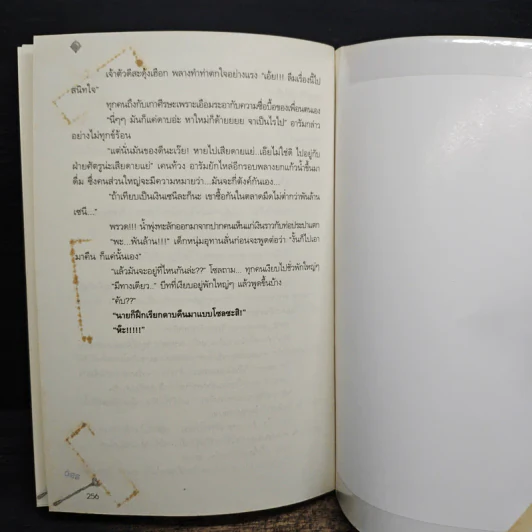 เจ้าตัวดีสะดุ้งเฮือก พลางทำท่าตกใจอย่างแรง "เอ้ย!!! ลืมเรื่องนี้ไป
สนิทใจ"
ทุกคนถึงกับเกาศีรษะเพราะเอือมระอากับความซื่อบื้อของเพื่อนตนเอง
"นี่ๆๆ มันก็แค่ดาบอ่ะ หาใหม่ก็ด้ายยยย จาเป็นไรไป" อารัมกล่าว
อย่างไม่ทุกข์ร้อน
"แต่นั่นมันของดีนะเว๊ย! หายไปเสียดายแย่..เอ๊ยไม่ใช่ดิ ไปอยู่กับ
ฝ่ายศัตรูน่ะเสียดายแย่" เคนท้วง อารัมยักไหล่อีกรอบพลางยกแก้วน้ำขึ้นมา
ดื่ม ซึ่งคนส่วนใหญ่จะมีความหมายว่า...มันจะก็ตังค์กันเอง...
"ถ้าเทียบเป็นเงินเซนีละก็นะ เขาซื้อกันในตลาดมืดไม่ต่ำกว่าพันล้าน
เซนี..."
พรวด!! น้ำพุ่งทะลักออกมาจากปากคนเห็นแก่เงินราวกับท่อประปาแตก
"พะ...พันล้าน!!!" เด็กหนุ่มอุทานลั่นก่อนจะพูดต่อว่า "งั้นก็ไปเอา
มาคืน ก็แค่นั้นเอง"
"แล้วมันจะอยู่ที่ไหนกันล่ะ??" โซลถาม... ทุกคนเงียบไปชั่วพักใหญ่ๆ
"มีทางเดียว.." บีทที่เงียบอยู่พักใหญ่ๆ แล้วพูดขึ้นบ้าง
"คับ??"
"นายก็ฝึกเรียกดาบคืนมาแบบโซลซะสิ!"
"ห๊ะ!!!!!"
256